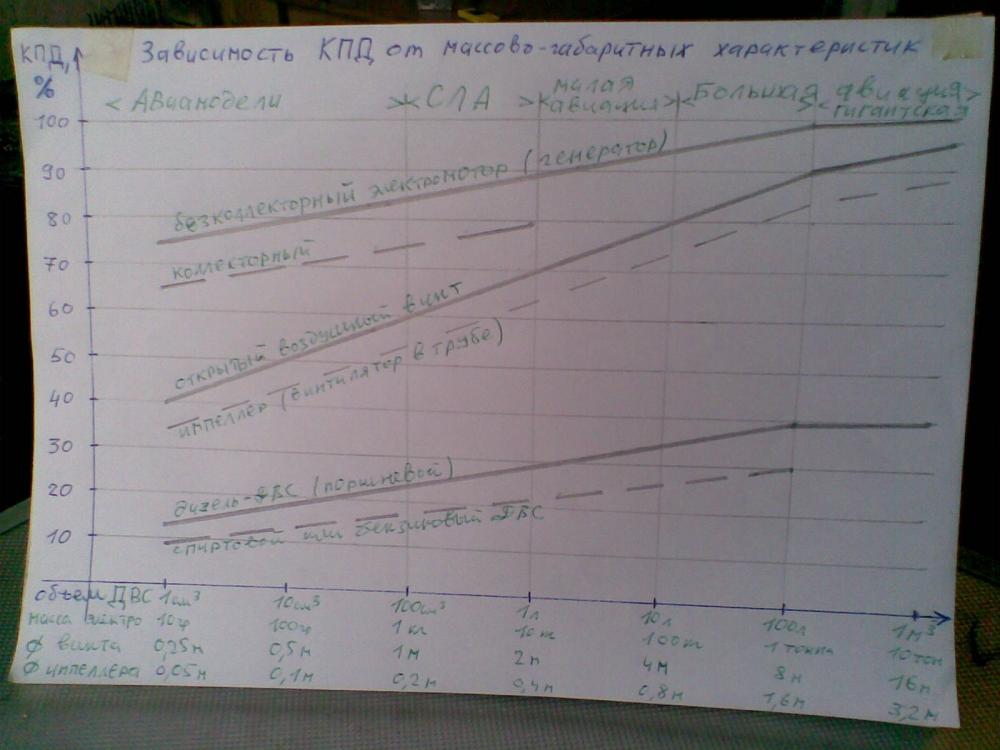 Зависимость КПД от массово-габаритных характеристик
КПД,
%
< Авиамодели >< СЛА >< малая авиация >< Большая авиация >
< гигантская
100
90
80
70
60
50
40
30
20
10
безколлекторный электромотор (генератор)
коллекторный
открытый воздушный винт
импеллер (винтилятор в трубе)
дизель-ДВС (поршневой)
спиртовой или бензиновый ДВС
объем ДВС 1см³ 10см³ 100см³ 1л 10л 100л 1м³
масса электро 10гр 100гр 1кг 10кг 100кг 1 тонна 10тон
⌀ винта 0,25м 0,5м 1м 2м 4м 8м 16м
⌀ импеллера 0,05м 0,1м 0,2м 0,4м 0,8м 1,6м 3,2м